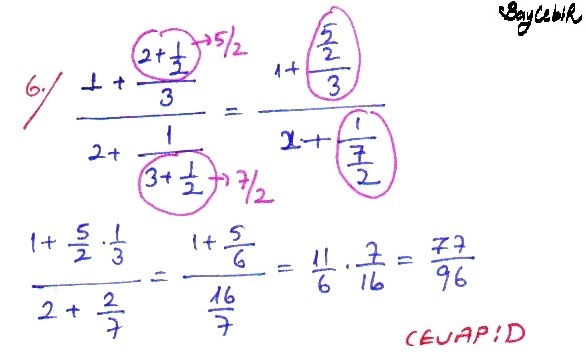 BayCebiR
6./ \frac{1 + \frac{2 + \frac{1}{2}}{3}}{2 + \frac{1}{3 + \frac{1}{2}}} = \frac{1 + \frac{\frac{5}{2}}{3}}{x + \frac{1}{\frac{7}{2}}}
→5/2
→7/2
\frac{1 + \frac{5}{2} \cdot \frac{1}{3}}{2 + \frac{2}{7}} = \frac{1 + \frac{5}{6}}{\frac{16}{7}} = \frac{11}{6} \cdot \frac{7}{16} = \frac{77}{96}
CEVAP:D